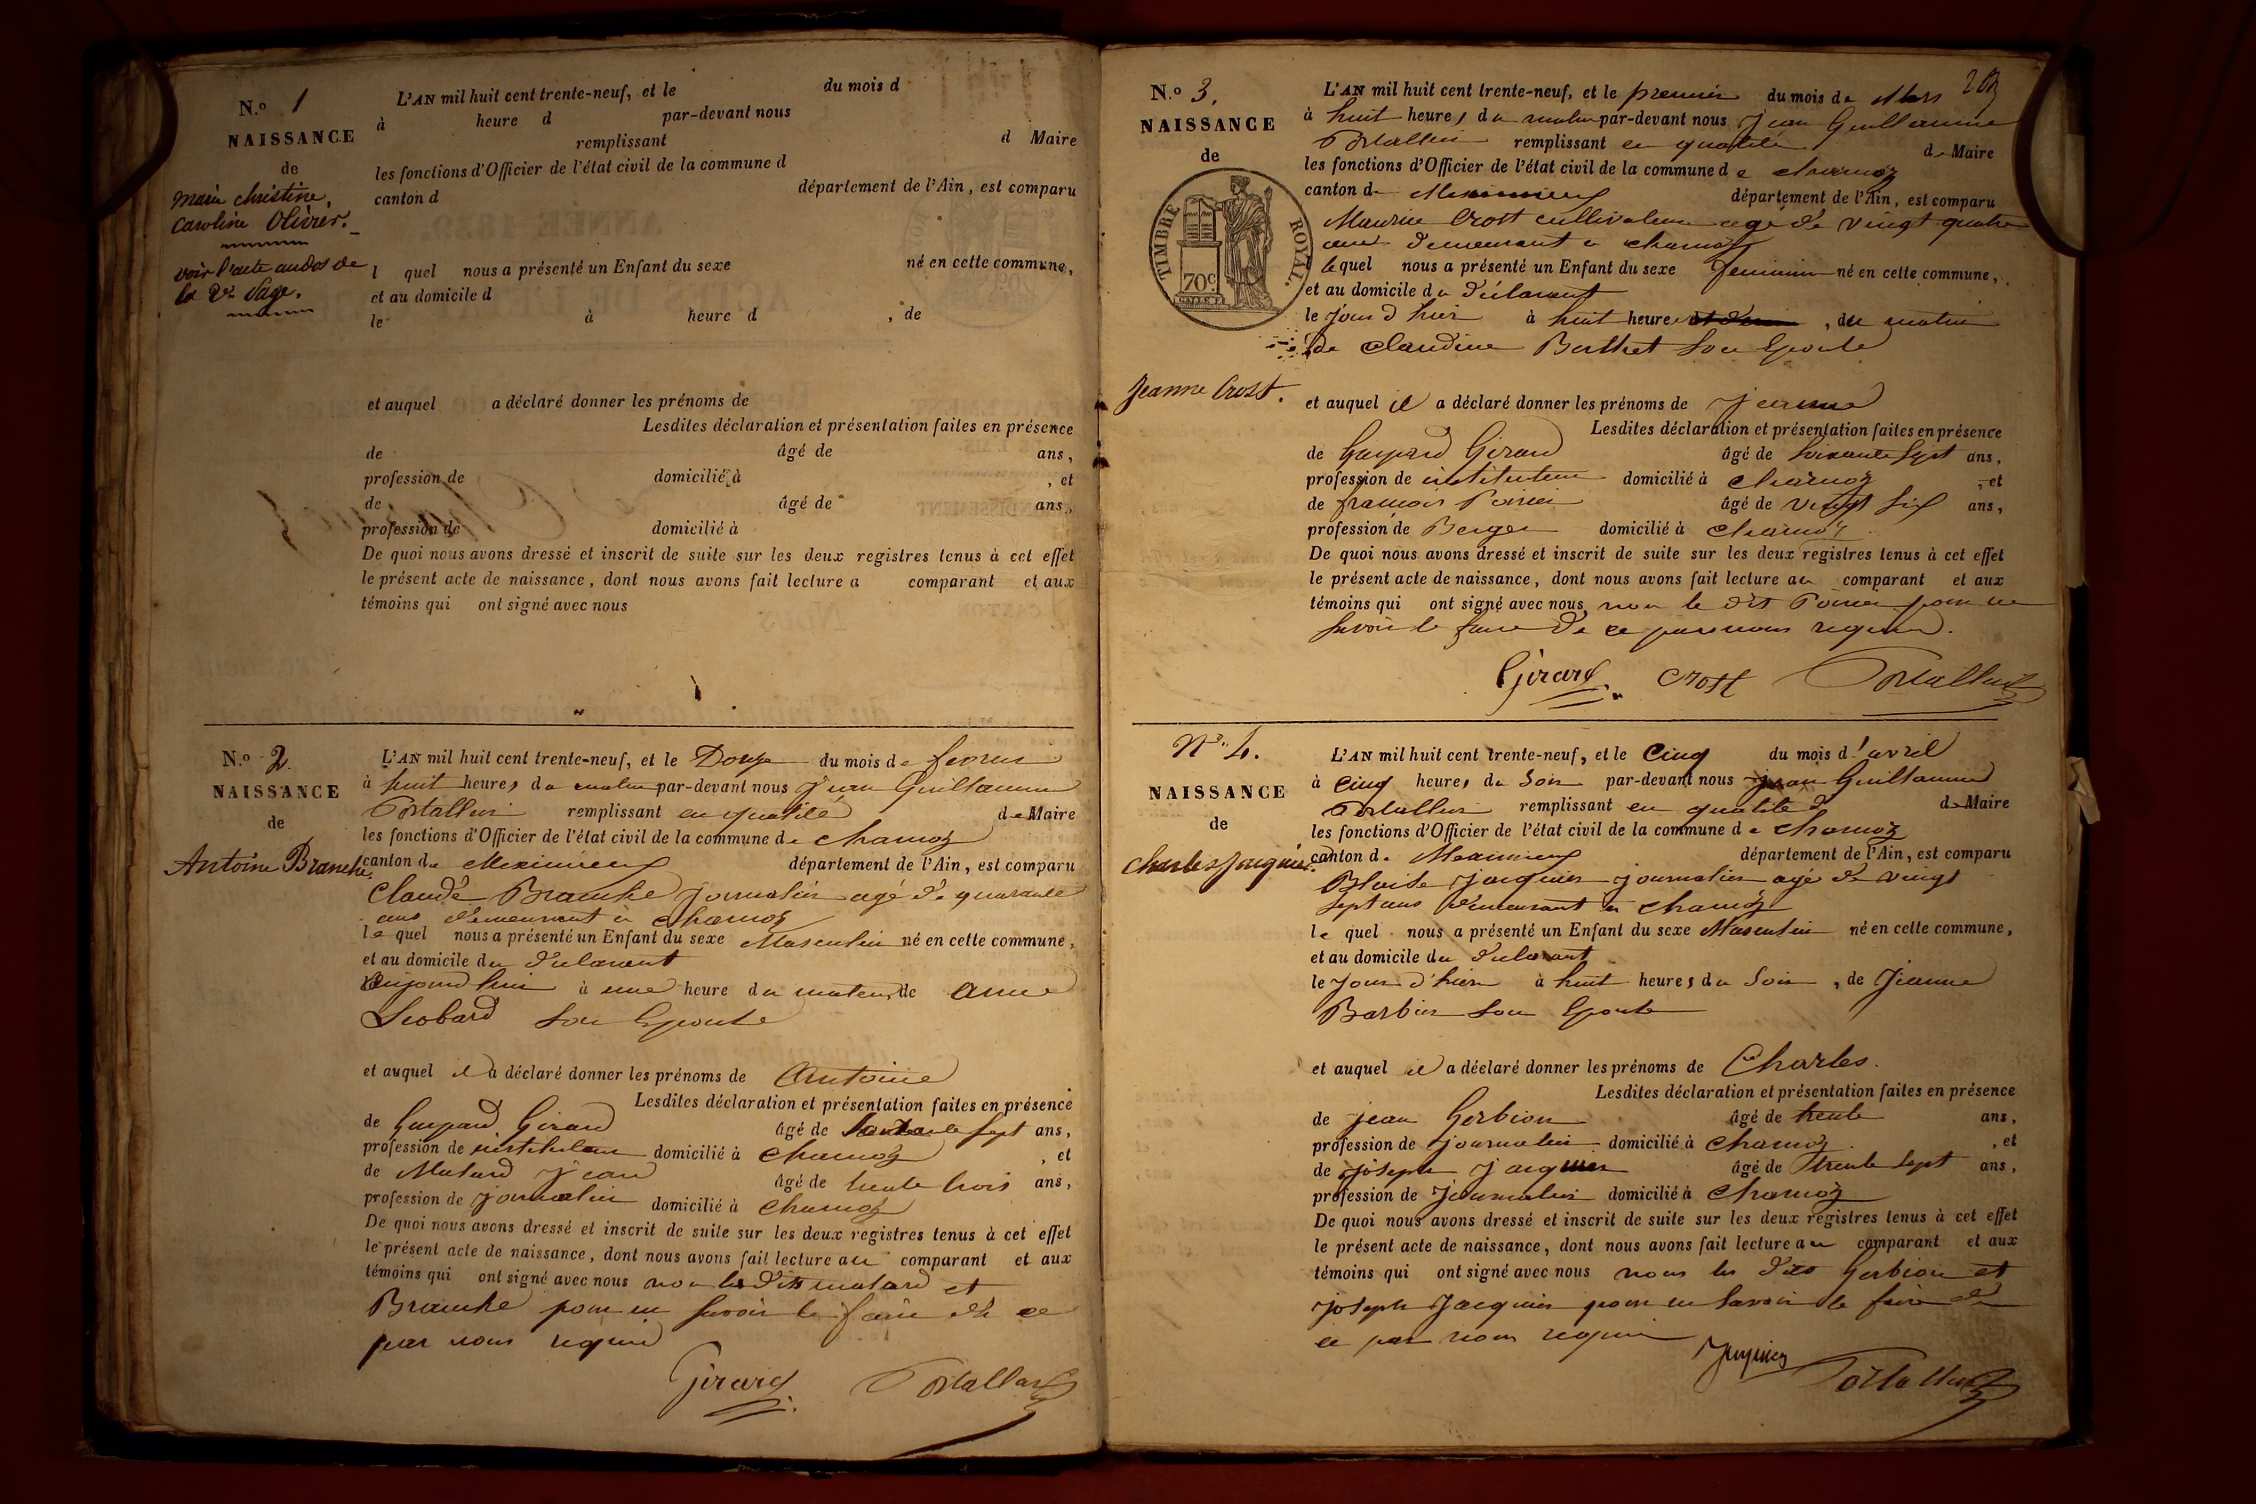 N.º 1
NAISSANCE
de
Marie Christine,
Caroline Olivier.
voir l'acte au dos de
la 2e page.
L'AN mil huit cent trente-neuf, et le du mois d
à heure d par-devant nous
remplissant d Maire
les fonctions d'Officier de l'état civil de la commune d
canton d département de l'Ain, est comparu
l quel nous a présenté un Enfant du sexe né en cette commune,
et au domicile d
le à heure d , de
et auquel a déclaré donner les prénoms de
Lesdites déclaration et présentation faites en présence
de âgé de ans,
profession de domicilié à , et
de âgé de ans,
profession de domicilié à
De quoi nous avons dressé et inscrit de suite sur les deux registres tenus à cet effet
le présent acte de naissance, dont nous avons fait lecture a comparant et aux
témoins qui ont signé avec nous
N.º 2
NAISSANCE
de
Antoine Branche
L'AN mil huit cent trente-neuf, et le Douze du mois de fevrier
à huit heures du matin par-devant nous Jean Guillaume
Portallier remplissant en qualité de Maire
les fonctions d'Officier de l'état civil de la commune de Charnoz
canton de Meximieux département de l'Ain, est comparu
Claude Branche journalier agé de quarante
ans demeurant à Charnoz
le quel nous a présenté un Enfant du sexe Masculin né en cette commune,
et au domicile du déclarant
aujourd'hui à une heure du matin, de Anne
Leobard son Epouse
et auquel il a déclaré donner les prénoms de Antoine
Lesdites déclaration et présentation faites en présence
de Gaspard Girard âgé de sept ans,
profession de instituteur domicilié à Charnoz , et
de Mutard Jean âgé de trente trois ans,
profession de journalier domicilié à Charnoz
De quoi nous avons dressé et inscrit de suite sur les deux registres tenus à cet effet
le présent acte de naissance, dont nous avons fait lecture au comparant et aux
témoins qui ont signé avec nous non les dits mutard et
Branche pour ne savoir le faire de ce
par nous requis
Girard Portallier
203
N.º 3.
NAISSANCE
de
TIMBRE ROYAL.
70c
Jeanne Crost.
L'AN mil huit cent trente-neuf, et le premier du mois de Mars
à huit heures du matin par-devant nous Jean Guillaume
Portallier remplissant en qualité de Maire
les fonctions d'Officier de l'état civil de la commune de Charnoz
canton de Meximieux département de l'Ain, est comparu
Maurice Crost cultivateur agé de vingt quatre
ans demeurant à Charnoz
le quel nous a présenté un Enfant du sexe feminin né en cette commune,
et au domicile du déclarant
le jour d'hier à huit heures , du matin
de Claudine Berthet son Epouse
et auquel il a déclaré donner les prénoms de Jeanne
Lesdites déclaration et présentation faites en présence
de Gaspard Girard âgé de soixante sept ans,
profession de instituteur domicilié à Charnoz , et
de francois Poncer âgé de vingt six ans,
profession de Berger domicilié à Charnoz
De quoi nous avons dressé et inscrit de suite sur les deux registres tenus à cet effet
le présent acte de naissance, dont nous avons fait lecture au comparant et aux
témoins qui ont signé avec nous, non le dit pour ne
savoir le faire de ce par nous requis.
Girard Crost Portallier
Nº 4.
NAISSANCE
de
Charles Jacquier.
L'AN mil huit cent trente-neuf, et le cinq du mois d'avril
à cinq heures du soir par-devant nous Jean Guillaume
Portallier remplissant en qualité de Maire
les fonctions d'Officier de l'état civil de la commune de Charnoz
canton de Meximieux département de l'Ain, est comparu
Blaise Jacquier journalier agé de vingt
sept ans demeurant à Charnoz
le quel nous a présenté un Enfant du sexe Masculin né en cette commune,
et au domicile du déclarant
le jour d'hier à huit heures du soir , de Jeanne
Barbier son Epouse
et auquel il a déclaré donner les prénoms de Charles.
Lesdites déclaration et présentation faites en présence
de jean Gerbion âgé de trente ans,
profession de journalier domicilié à Charnoz , et
de joseph Jacquier âgé de trente sept ans,
profession de journalier domicilié à Charnoz
De quoi nous avons dressé et inscrit de suite sur les deux registres tenus à cet effet
le présent acte de naissance, dont nous avons fait lecture au comparant et aux
témoins qui ont signé avec nous non les dits Gerbion et
joseph Jacquier pour ne savoir le faire de
ce par nous requis
Jacquier Portallier